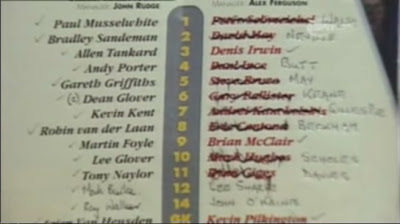 MANAGER: JOHN RUDGE MANAGER: ALEX FERGUSON
Paul Musselwhite 1 Peter Schmeichel WALSH
Bradley Sandeman 2 David May NEVILLE
Allen Tankard 3 Denis Irwin
Andy Porter 4 Paul Ince BUTT
Gareth Griffiths 5 Steve Bruce MAY
(c) Dean Glover 6 Gary Pallister KEANE
Kevin Kent 7 Andrei Kanchelskis GILLESPIE
Robin van der Laan 8 Eric Cantona BECKHAM
Martin Foyle 9 Brian McClair
Lee Glover 10 Mark Hughes SCHOLES
Tony Naylor 11 Ryan Giggs DAVIES
12 LEE SHARPE
14 JOHN O'KANE
Van Heusden GK Kevin Pilkington